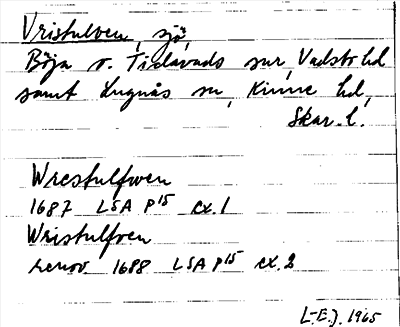 Vristulven, sjö,
Böja o. Tidavads snr, Vadsbo hd
samt Lugnås sn, Kinne hd,
Skar. l.
Wrestulfwen
1687 LSA P15 ex. 1
Wristulfven
renov. 1688 LSA P15 ex. 2
L-E.J. 1965